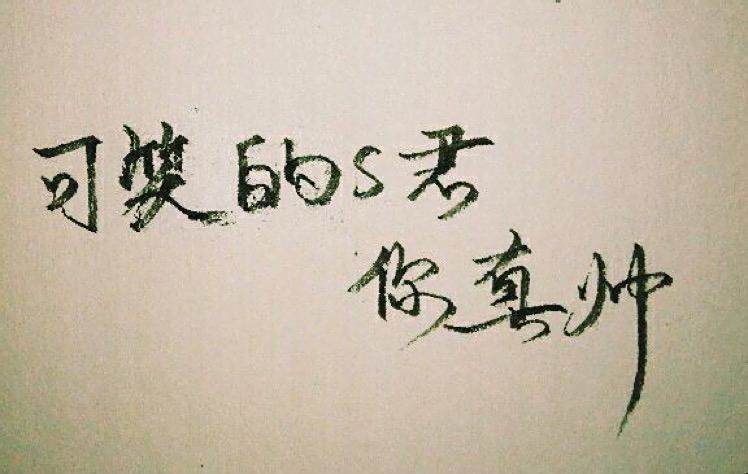 可笑的S君
你真帅